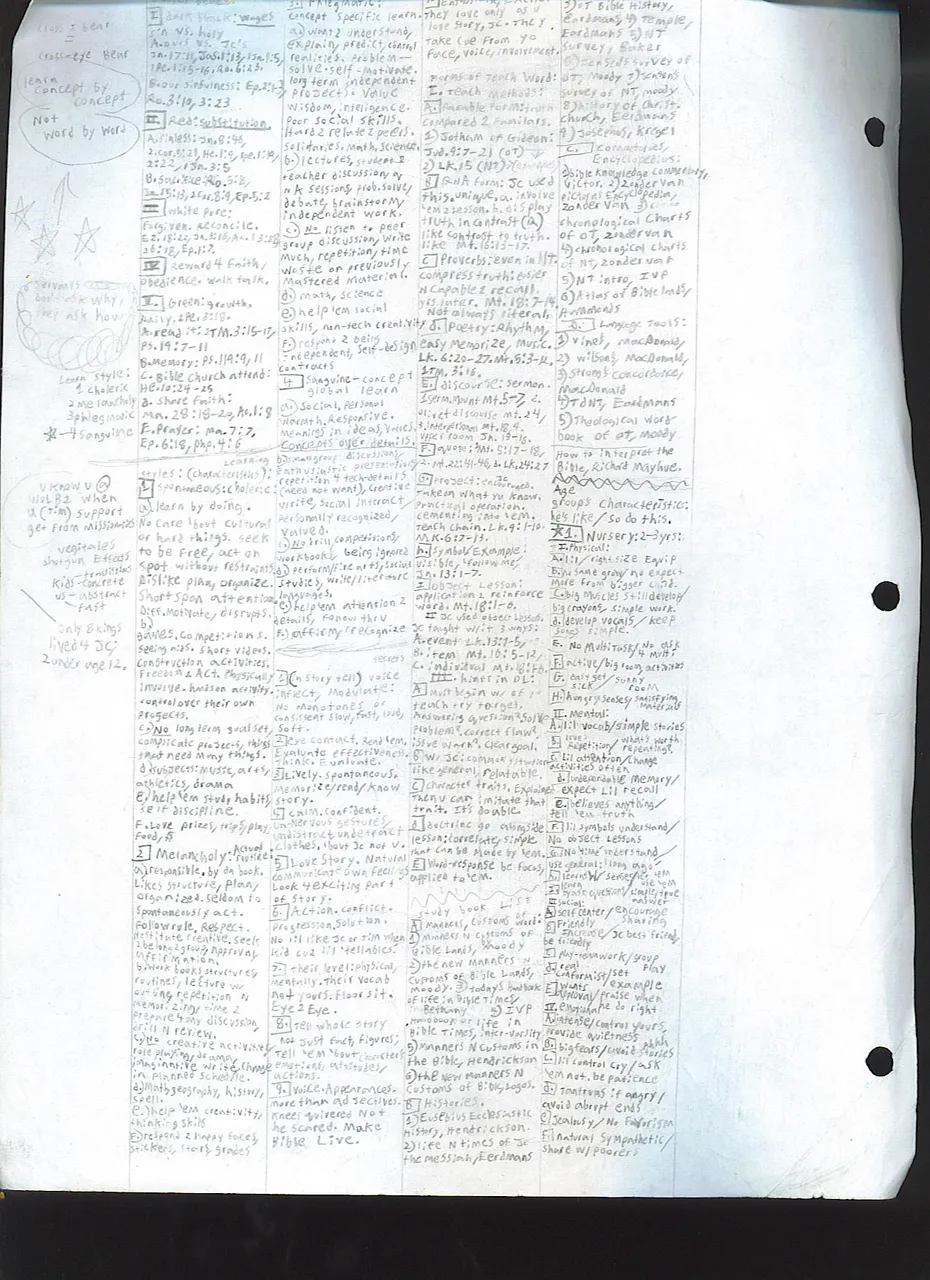 cross I bear
cross-eye Bear
learn
concept by
concept
Not
Word by Word
Servants
don't ask why,
they ask how
Learn style:
1 choleric
2 melancholy
3 phlegmatic
4 sanguine
U know U @
WOLB2 when
U (Tim) support
get from missionaries
vegitales
shotgun effects
transitions
Kids-concrete
us-abstract
fast
only 8 kings
lived 4 JC;
2 under age 12.
I dark black: wages
sin vs. holy
A. ours vs. JC's
B. our sinfulness:
Ro. 3:10, 3:23
II. Red: substitution.
A. sinless: Jn. 8:46,
2 cor. 5:21,
2:22, 1 Jn. 3:5
B. Sacrifice: Ro. 5:8,
Jn. 15:13, 2 Cor. 8:9, Ep. 5:2
III white pure:
forgiven. Reconcile.
IV Reward 4 Faith/
obedience. walk talk.
V. Green: growth.
daily. 2 Pe. 3:18.
A. read it: 2 TM. 3:15-17,
PS. 19:7-11
B. Memory: PS. 119:9, 11
C. Bible Church attend:
He. 10:24-25
D. Share Faith:
Ma. 28:18-20, Ac. 1:8
E. Prayer: Ma. 7:7,
Ep. 6:18, Php. 4:6
Learning
styles: (characteristics):
1 spontaneous: choleric:
a) learn by doing.
No care 'bout cultural
or hard things. seek
to be free, act on
spot without restraints.
Dislike plan, organize.
Short span attention.
Diff. Motivate, disrupts.
b)
games. competitions.
seeing aids. Short videos.
Construction activities.
Freedom 2 Act. Physically
involve. hands on activity.
control over their own
projects.
c. No long term goal set,
complicate projects, things
that need many things.
d) subjects: music, arts,
athletics, drama
e) help 'em study habits,
self discipline.
F. Love prizes, trips, play,
food, $
2 Melancholy: Actual
routine
a) responsible, by da book.
Likes structure, plan,
organized. Seldom to
spontaneously act.
Follow rule, Respect.
Hesitate creative. seek
2 belong 2 group, Approval,
affirmation.
b) work books structure,
routines, lecture w/
outline, repetition N
memorizing, time 2
prepare 4 any discussion,
drill N review.
c) No creative activities
role playing, drama,
imaginative write, change
in planned schedule.
d) Math, geography, history,
spell.
e.) help 'em creativity,
thinking skills
F. respond 2 happy faces,
stickers, stars, grades
3. Phlegmatic:
concept specific learn.
a) want 2 understand,
explain, predict, control
realities. Problem-
solve. self-motivate.
long term independent
projects. Value
Wisdom, inteligence.
Poor social skills.
Hard 2 relate 2 peers.
solitaries. math, science.
b) lectures, student 2
teacher discussion, Q N
A sessions, prob. solve,
debate, brainstorm,
independent work.
c. No listen to peer
group discussion, write
Much, repetition, time
waste or previously
mastered material.
d. math, science
e) help 'em social
skills, non-tech creativity
F.) respond 2 being
independent, self-design
contracts
4 Sanguine-concept
global learn
a. Social, Personal
Warmth, Responsive.
Meanings in ideas, values.
Concepts over details.
b) small group discussion,
Enthusiastic presentation,
repetition 4 tech-details
(need not want), creative
write, social interact,
personally recognized,
valued.
c. No drill, competitions,
workbooks, being ignored
d) perform/fine arts, social
studies, write/literature,
languages.
e) help 'em attention 2
details, follow thru
F.) affirm/recognize
secrets
1 (in story tell) voice
inflect, modulate:
No monotones or
consistent slow, fast, loud,
soft.
2 eye contact. Read 'em.
Evaluate effectiveness.
Think. Evaluate.
3 Lively. spontaneous.
Memorize/read/know
story.
4 Calm. confident.
un-Nervous gestures,
undistract undetract
clothes. 'bout JC not U.
5 Love Story. Natural
communicate own feelings
Look 4 exciting part
of story.
6. Action. conflict.
Progression. Solution.
7. Their level: physical,
mentally. Their vocab
not yours. Floor sit.
Eye 2 Eye.
8. Tell whole story
not just facts, figures;
Tell 'em 'bout characters
emotions, attitudes,
actions.
9. Voice. Appearances.
more than adjectives.
Knees quivered Not
he scared. Make
Bible Live.
They love only as U
love story, JC. They
Take cue from yo
Face, voice, involvement.
Forms of Teach Word:
I. Teach Methods:
A. Parable form: truth
compared 2 familars.
1) Jotham of Gideon:
Jud. 9:7-21 (OT)
2) LK. 15 (NT)
B QNA form: JC used
this, unique. a. involve
'em 2 lesson. b. display
truth in contrast (Q)
like contrast to truth.
like Mt. 16:13-17.
C Proverbs: even in NT.
compress truth: easier
N capable 2 recall
yrs later. Mt. 18:7-14.
Not always literal
d. Poetry: Rhythm,
easy Memorize, Music.
LK. 6:20-27. Mt. 5:3-12,
1 TM. 3:16.
E. discourse: sermon.
1 serm. mount Mt. 5-7, 2.
olivet discourse mt. 24,
3. interpersonal mt. 18, 4.
upper room Jn. 13-16.
F. quote: Mt. 5:17-18,
2. Mt. 22:41-46, 3. LK. 24:27
G. Project: encouraged.
Take on what yu know.
practical operation.
cementing into 'em.
Teach chain. LK. 9:1-10.
MK. 6:7-13.
h. Symbol/Example:
visible, 'follow me'.
Jn. 13:1-7.
I object Lesson:
application 2 reinforce
word. Mt. 18:1-6.
II JC used object Lesson.
JC taught w/it 3 ways:
A. event LK. 13:1-5,
B. item Mt. 16:5-12,
C. individual Mt. 18:1-6
III. hints in OL:
A Must begin w/ of yr
teach + yr target.
Answering question? Solve
problem? correct flaw?
issue warn? Clear goal.
B w/ JC: common situation
like general relatable.
C Character traits. Explained
Then U can imitate that
trait. It's doable.
d doctrine go alongside
lesson: correlate, simple
that can be made by 'em.
E Word-response be focus,
applied to 'em.
study book List
A Manners, Customs of Word:
1) Manners N customs of
Bible Lands, Moody
2) the new Manners N
Customs of Bible Lands,
Moody. 3) today's handbook
of life in Bible Times,
Bethany 4) IVP
Handbook of life in
Bible Times, inter-varsity
5) Manners N Customs in
the Bible, Hendrickson
6) the new manners N
Customs of Bible, Logos.
B Histories.
1) Eusebius Ecclesiastic
History, Hendrickson.
2) life N times of Jc
the messiah, Eerdmans
3) OT Bible History,
Eerdmans 4) Temple,
Eerdmans 5) NT
Survey, Baker
6) Jensen's survey of
OT, Moody 7) Jensen's
survey of NT, moody
8) history of Christ.
Church, Eerdmans
9) Josephus, Kregel
C. commentaries,
Encyclopedias:
1) Bible Knowledge commentary,
Victor. 2) Zondervan
pictorial Encyclopedia,
Zondervan 3)
chronological Charts
of OT, zondervan
4) chronological charts
of NT, zondervan
5) NT intro, IVP
6) Atlas of Bible lands,
Hammonds
D. Language Tools:
1) Vines, MacDonald,
2) Wilsons, MacDonald,
3) Strong's Concordance,
MacDonald
4) TDNT, Eerdmans
5) Theological word
book of OT, moody
How to interpret the
Bible, Richard Mayhue.
Age
groups Characteristics:
he's like/so do this.
1. Nursery: 2-3 yrs:
I. Physical:
A. lil/right size Equip
B. No same grow/no expect
more from bigger child.
C. big Muscles still develop/
big crayons, simple work.
d. develop vocals/keep
songs simple.
E. No Multitask/No ask
4 multi
F. active/big room, activities
G. easy get/sunny
sick room
H. hungry senses/satisfying
materials
II. Mental:
A. lil vocab/simple stories
B. love what's worth
Repetition/repeating?
C. Lil attention/change
activities often
d. undependable Memory/
expect lil recall
e. believes anything/
tell 'em truth
F. lil symbols understand/
No object Lessons
G. No time understand/
use general: long ago
h. learn w/ senses/let 'em
learn use 'em
I. ask question/simple, true
answer
III social:
A self center/encourage
sharing
B Friendly
Increase/Jc best friend,
be friendly
C. play-teamwork/group
play
d. real
conformist/set
example
E wants
approval/praise when
he do right
IV. emotional
A. intense/control yours,
provide quietness
B. big fears/avoid ahhh
stories
C. lil control cry/ask
'em not. be patience
d. Tantrums if angry/
avoid abrupt ends
e) Jealousy/No Favorism
F. natural sympathetic/
share w/ poorers